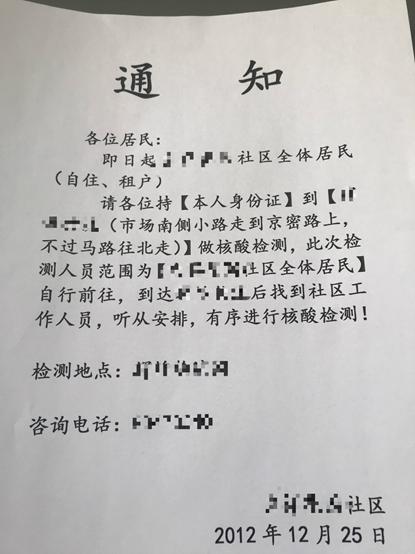 通 知
各位居民:
即日起社区全体居民
(自住、租户)
请各位持【本人身份证】到【
(市场南侧小路走到京密路上,
不过马路往北走)】做核酸检测,此次检
测人员范围为【社区全体居民】
自行前往,到达后找到社区工
作人员,听从安排,有序进行核酸检测!
检测地点:
咨询电话:
社区
2012年12月25日